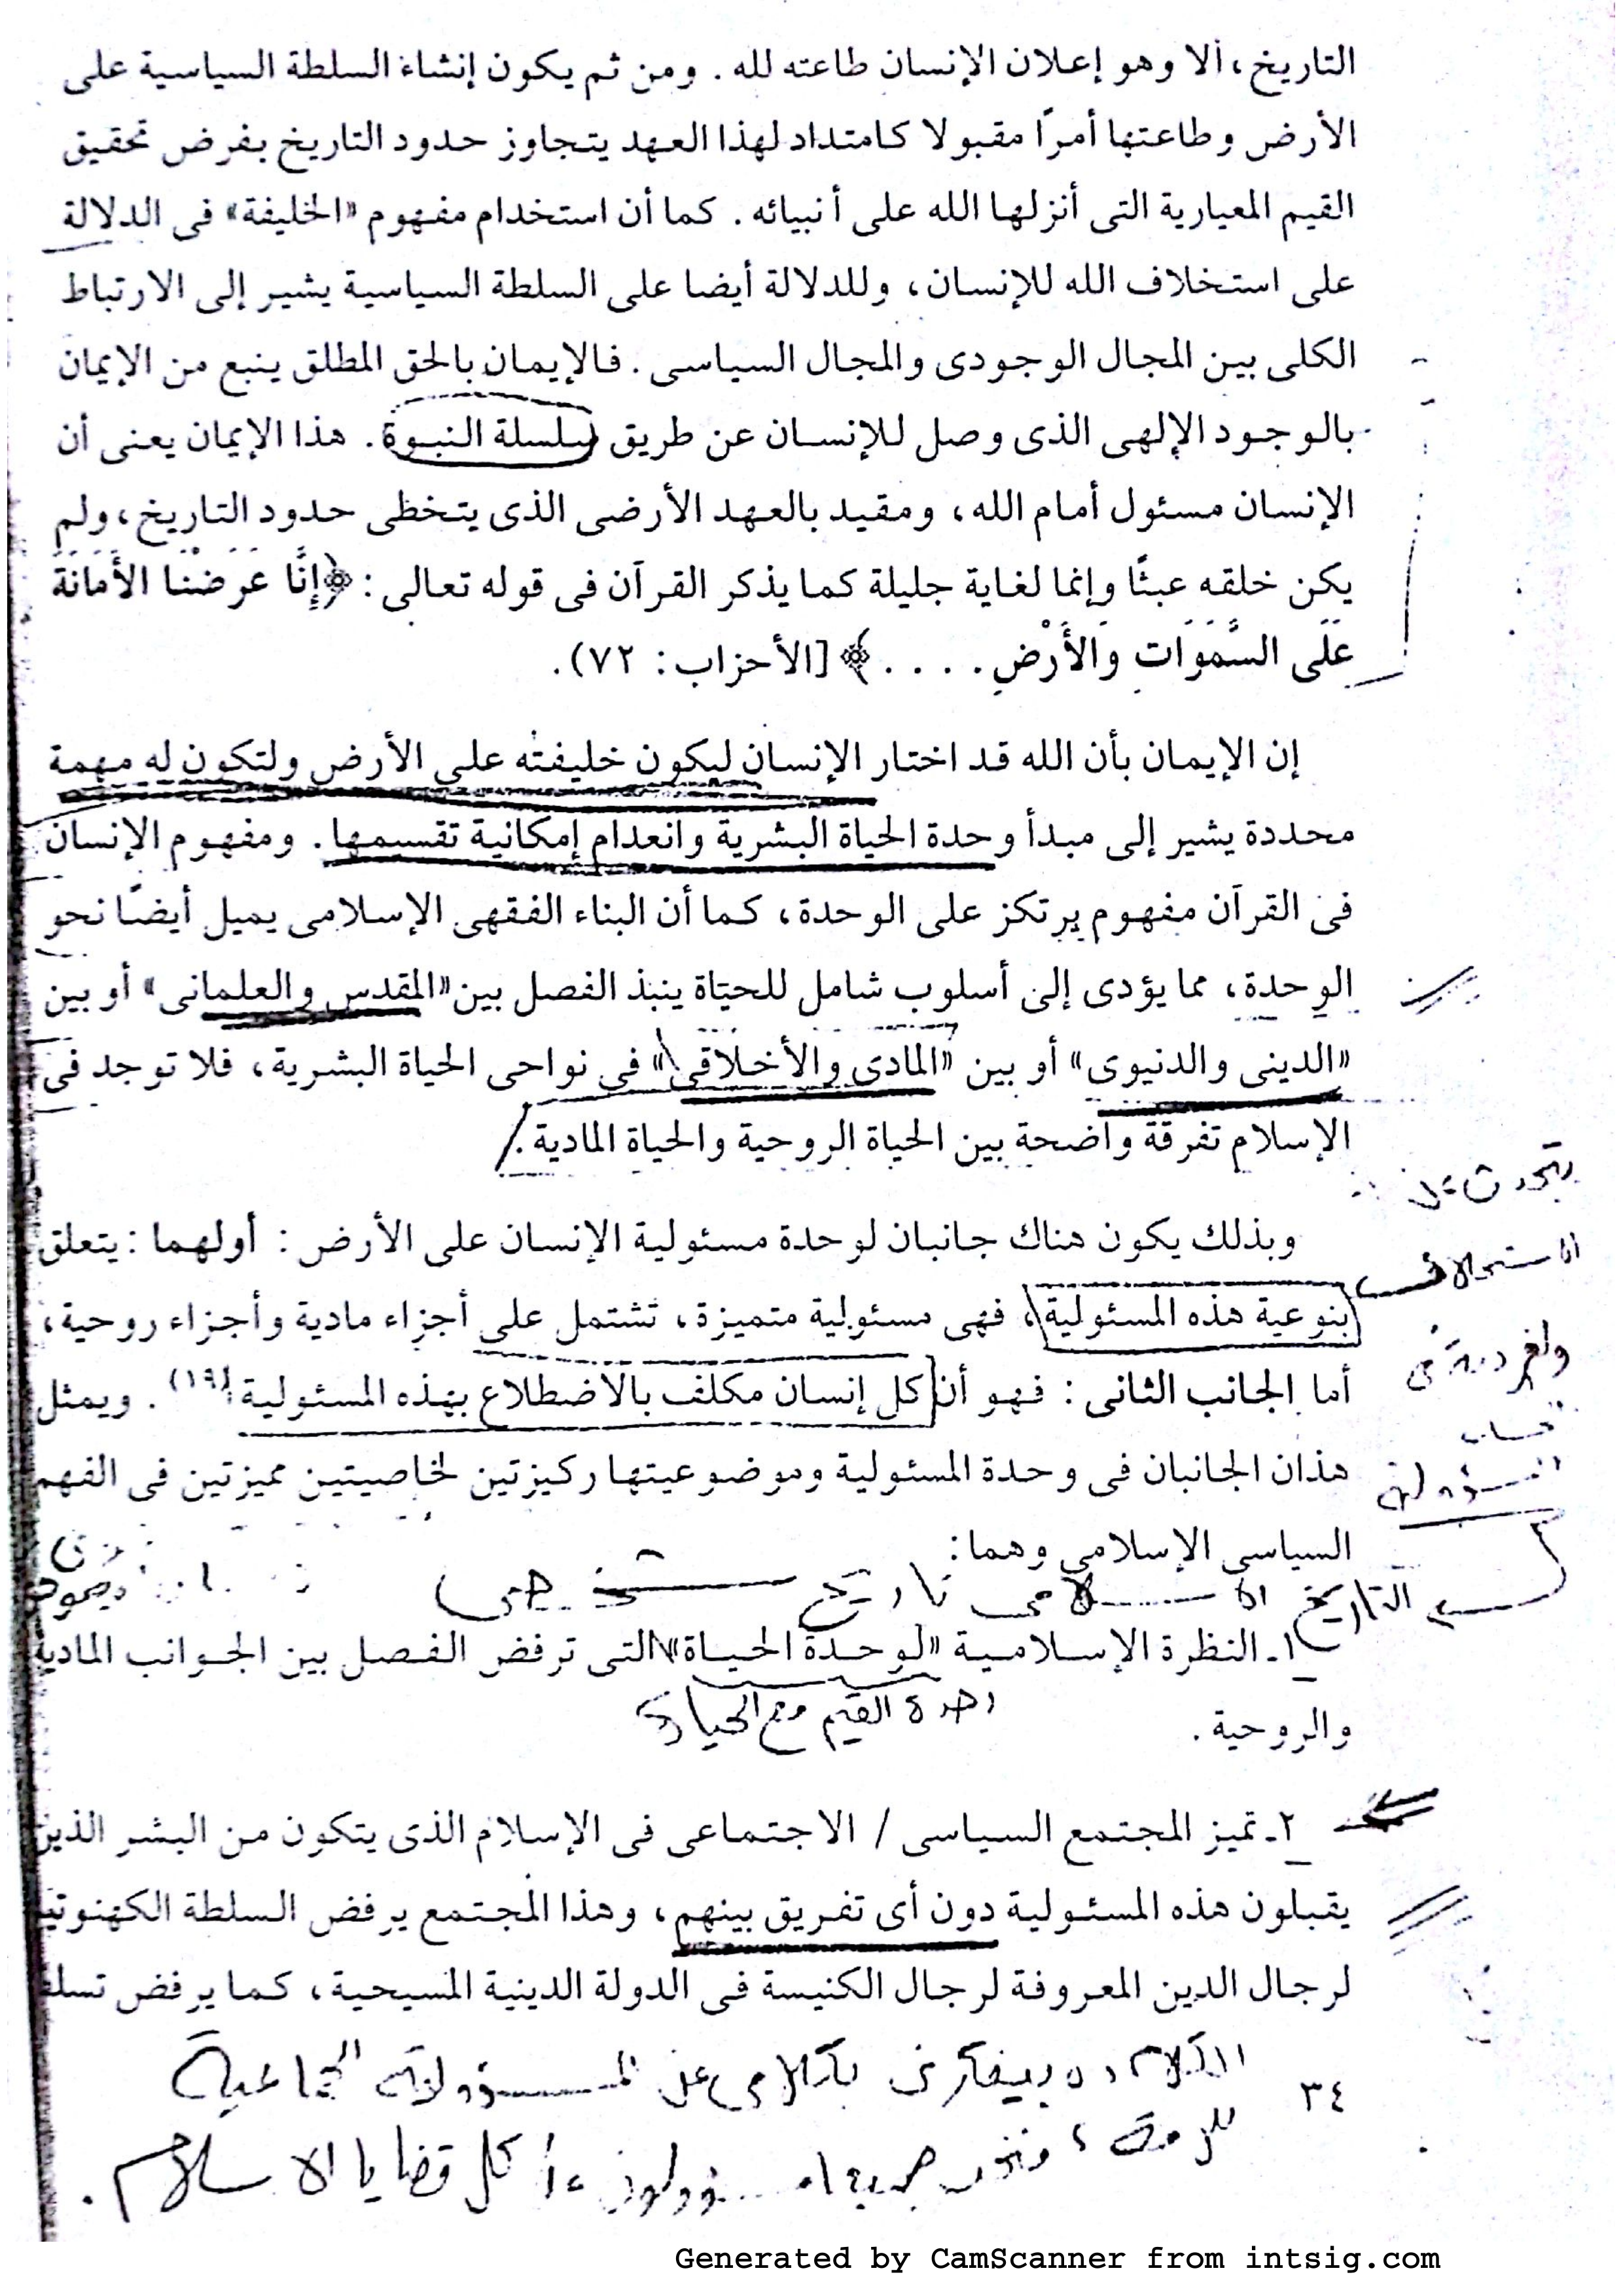 التاريخ، ألا وهو إعلان الإنسان طاعته لله. ومن ثم يكون إنشاء السلطة السياسية على
الأرض وطاعتها أمرًا مقبولا كامتداد لهذا العهد يتجاوز حدود التاريخ بفرض تحقيق
القيم المعيارية التى أنزلها الله على أنبيائه. كما أن استخدام مفهوم «الخليفة» فى الدلالة
على استخلاف الله للإنسان، وللدلالة أيضا على السلطة السياسية يشير إلى الارتباط
الكلى بين المجال الوجودى والمجال السياسى. فالإيمان بالحق المطلق ينبع من الإيمان
بالوجود الإلهى الذى وصل للإنسان عن طريق سلسلة النبوة. هذا الإيمان يعنى أن
الإنسان مسئول أمام الله، ومقيد بالعهد الأرضى الذى يتخطى حدود التاريخ، ولم
يكن خلقه عبثًا وإنما لغاية جليلة كما يذكر القرآن فى قوله تعالى: ﴿إِنَّا عَرَضْنَا الأَمَانَةَ
عَلَى السَّمَوَاتِ وَالأَرْضِ. . . .﴾ [الأحزاب: ٧٢).
إن الإيمان بأن الله قد اختار الإنسان ليكون خليفته على الأرض ولتكون له مهمة
محددة يشير إلى مبدأ وحدة الحياة البشرية وانعدام إمكانية تقسيمها. ومفهوم الإنسان
فى القرآن مفهوم يرتكز على الوحدة، كما أن البناء الفقهى الإسلامى يميل أيضًا نحو
الوحدة، مما يؤدى إلى أسلوب شامل للحياة ينبذ الفصل بين «المقدس والعلمانى» أو بين
«الدينى والدنيوى» أو بين «المادى والأخلاقى» فى نواحى الحياة البشرية، فلا توجد فى
الإسلام تفرقة واضحة بين الحياة الروحية والحياة المادية.
يتحدث عن
وبذلك يكون هناك جانبان لوحدة مسئولية الإنسان على الأرض: أولهما: يتعلق
الاستخلاف
بنوعية هذه المسئولية، فهى مسئولية متميزة، تشتمل على أجزاء مادية وأجزاء روحية،
والفردية فى
أما الجانب الثانى: فهو أن كل إنسان مكلف بالاضطلاع بهذه المسئولية(١٩). ويمثل
المسؤولية
هذان الجانبان فى وحدة المسئولية وموضوعيتها ركيزتين لخاصيتين مميزتين فى الفهم
السياسى الإسلامى وهما:
التاريخ الاسلامى تاريخ شخصى
١ـ النظرة الإسلامية «لوحدة الحياة» التى ترفض الفصل بين الجوانب المادية
وحدة القيم مع الحياة
والروحية.
٢ـ تميز المجتمع السياسى / الاجتماعى فى الإسلام الذى يتكون من البشر الذين
يقبلون هذه المسئولية دون أى تفريق بينهم، وهذا المجتمع يرفض السلطة الكهنوتية
لرجال الدين المعروفة لرجال الكنيسة فى الدولة الدينية المسيحية، كما يرفض تسلط
الكلام ده بيفكرنى بكلامى عن المسؤولية الجماعية
للأمة، ونحن جميعا مسؤولون عن كل قضايا الاسلام.
٣٤
Generated by CamScanner from intsig.com